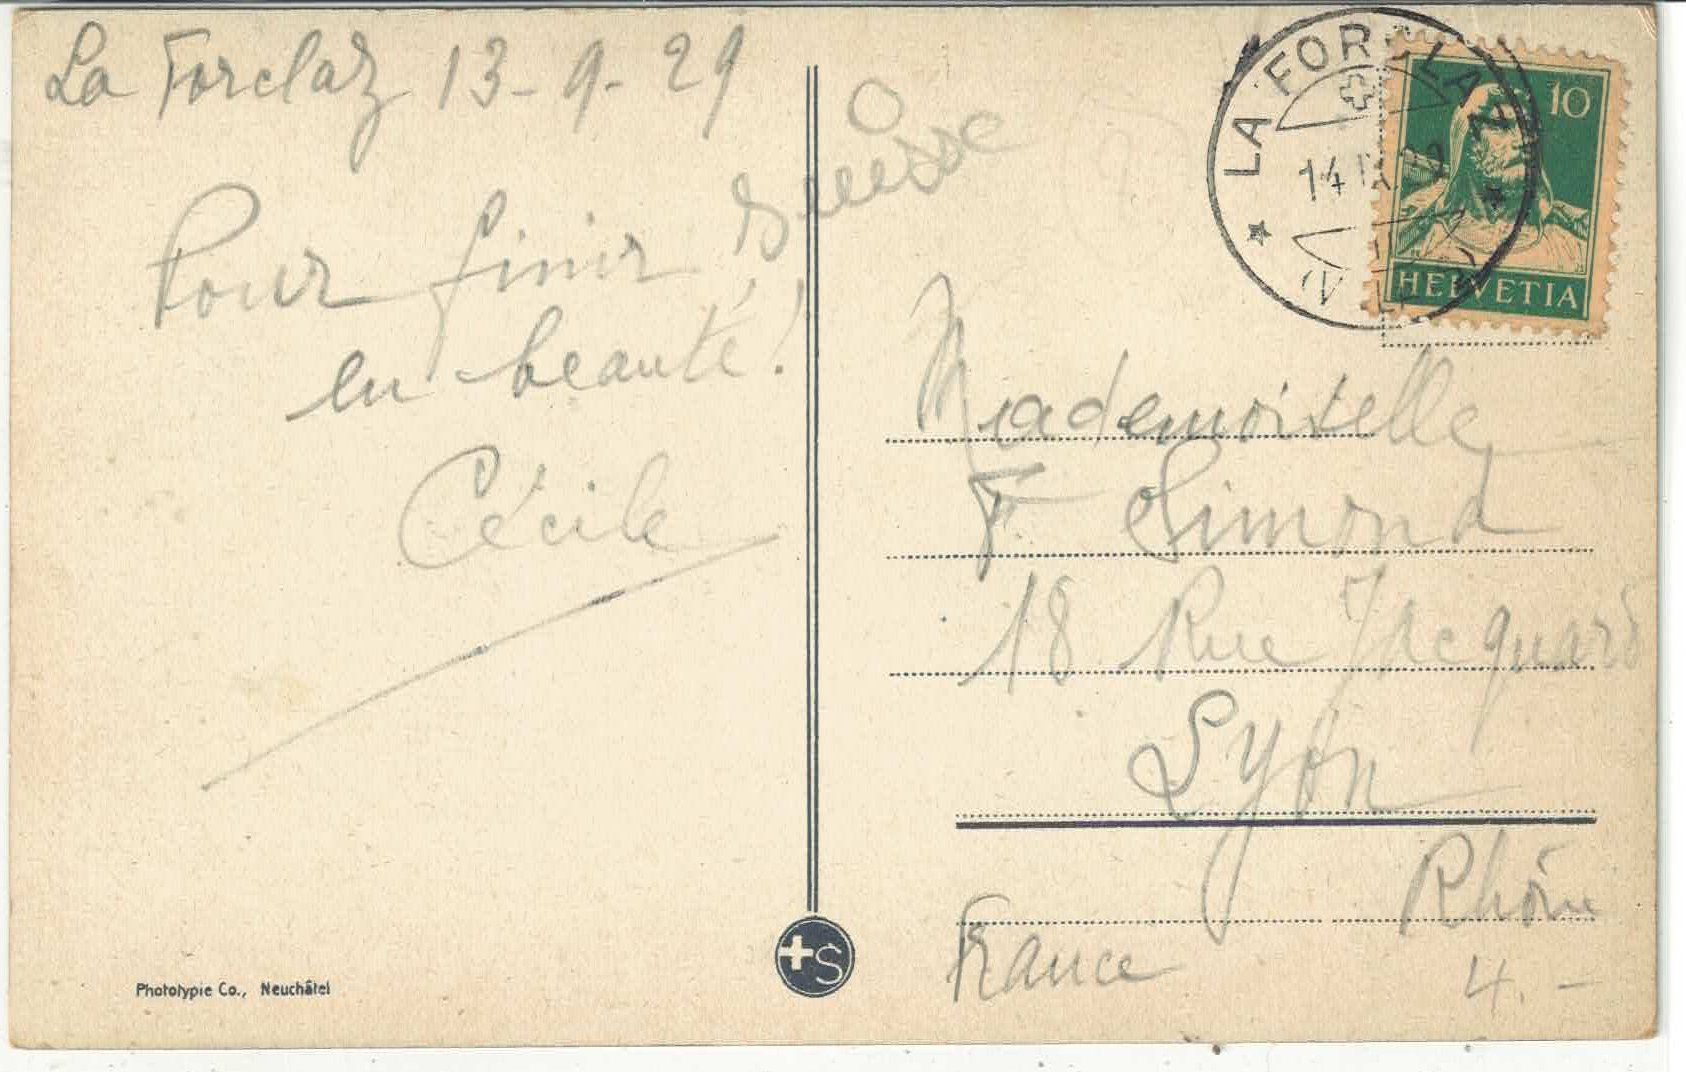 La Forclaz 13-9-29
Suisse
Pour finir
en beauté!
Cécile
Phototypie Co., Neuchâtel
+S
LA FORCLAZ
14 IX
10
HELVETIA
Mademoiselle
F. Simond
18 Rue Jacquard
Lyon
Rhône
France
4.-